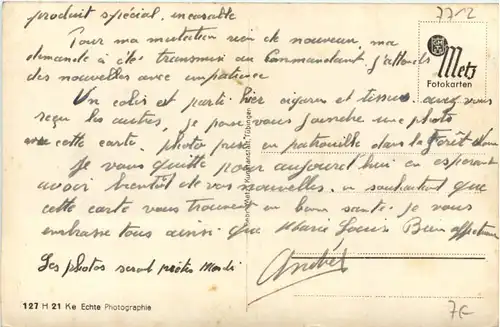 produit spécial, incassable
7712
Metz
Fotokarten
Pour ma mutation rien de nouveau, ma
demande a été transmise au Commandant j'attends
des nouvelles avec impatience
Un colis est parti hier cigares et tissus avez vous
reçu les autres, je peux vous joindre une photo
cette carte, photo prise en patrouille dans la Forêt
Je vous quitte pour aujourd'hui en espérant
avoir bientôt de vos nouvelles, en souhaitant que
cette carte vous trouvent en bonne santé. je vous
embrasse tous ainsi que Marie Louise Bien affectueu
Les photos seront prêtes Mardi
André
Gebr. Metz, Kunstanstalt, Tübingen
127 H 21 Ke Echte Photographie
7€